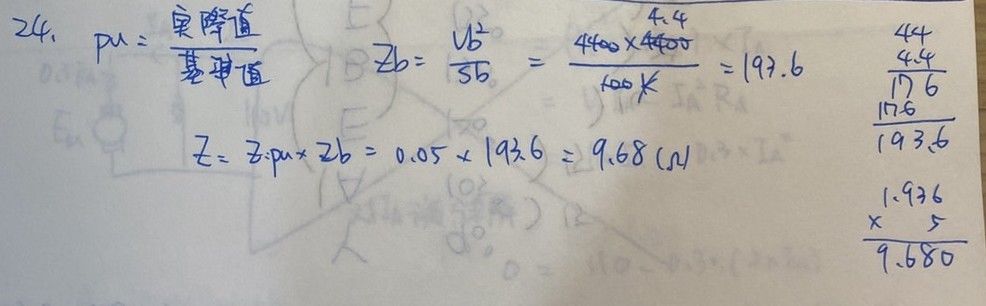 24. pu = 実際值/基準值 Zb = Vb²/Sb = 4400 × 4400 4.4/100 K = 193.6
Z = Z.pu × Zb = 0.05 × 193.6 = 9.68 (Ω)
44
4.4
176
176
193.6
1.936
× 5
9.680